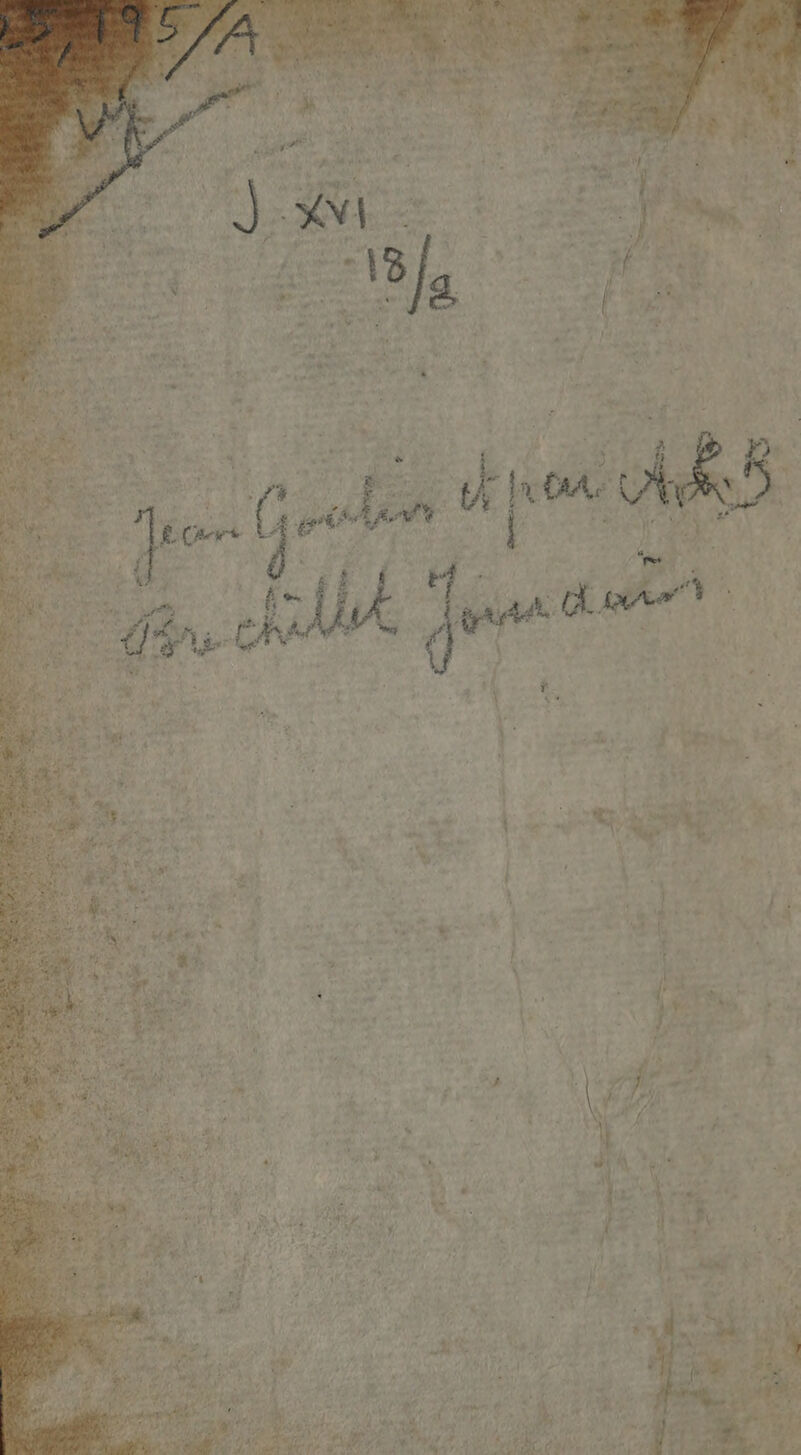 25,195/A
J. XVI
18/2
Jean Goulin et par A.&B
Bruchillet Jourdain